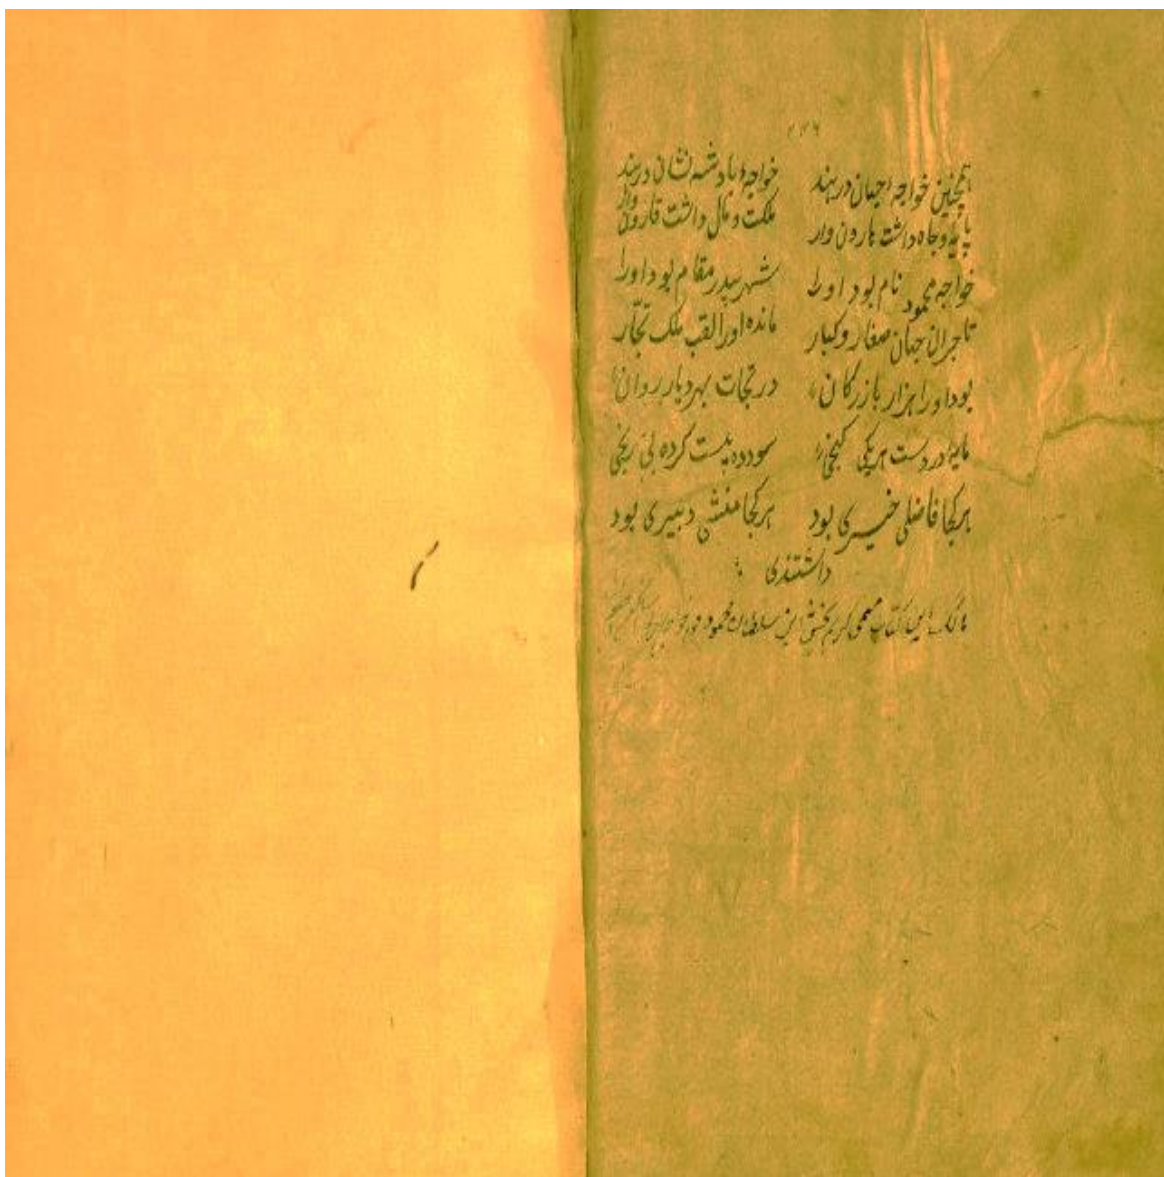 ۲۴۶
همچنین خواجه جهان در هند خواجه پادشه نشان در هند
پایه و جاه داشت هارون وار ملکت و مال داشت قارون وار
خواجه محمود نام بود او را شهر بیدر مقام بود او را
تاجران جهان صغار و کبار مانده او را لقب ملک تجّار
بود او را هزار بازرگان در تجات بهر دیار روان
مایه در دست هر یکی گنجی سود ده بیست کرده بی رنجی
هر کجا فاضلی خبیری بود هر کجا منشی دبیری بود
داشتندی
مالک این کتاب کریم بخش ابن سلطان محمود